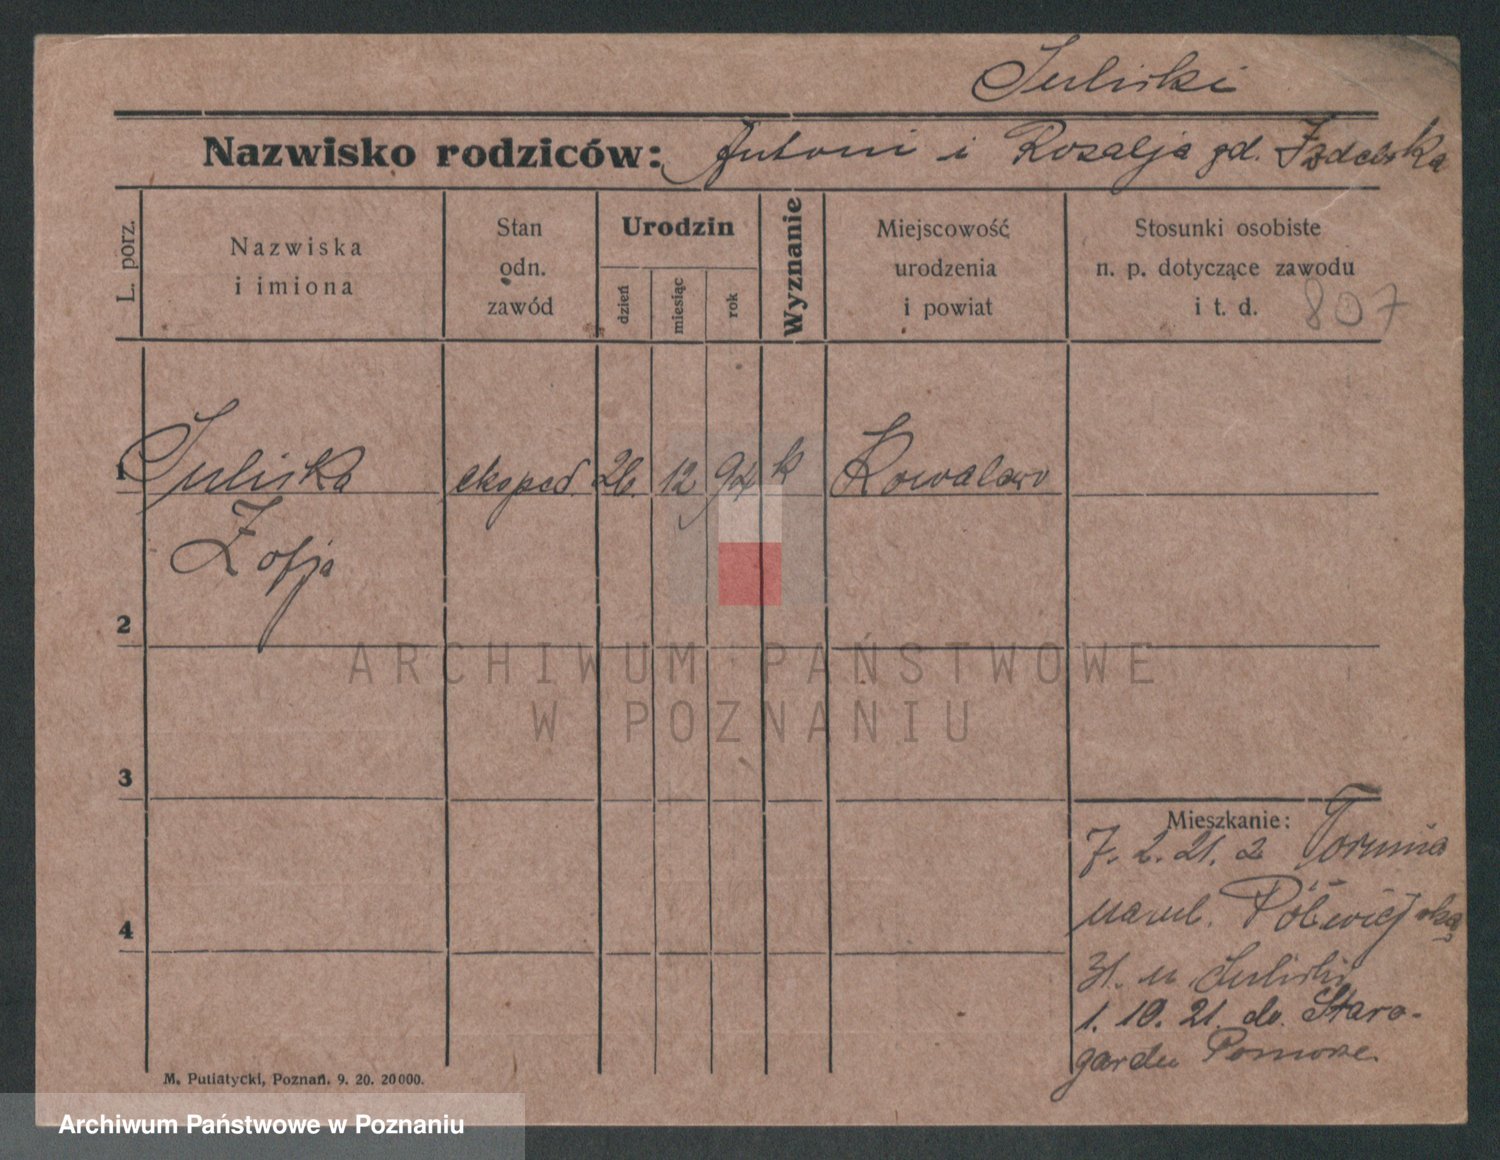 Suliski
Nazwisko rodziców: Antoni i Rozalja gd.
L. porz.
Nazwiska
i imiona
Stan
odn.
zawód
Urodzin
dzień
miesiąc
rok
Wyznanie
Miejscowość
urodzenia
i powiat
Stosunki osobiste
n. p. dotyczące zawodu
i t. d. 807
1 Suliska eksped. 26. 12 94 k Kowalewo
Zofja
2
ARCHIWUM PAŃSTWOWE
W POZNANIU
3
Mieszkanie:
7. 2. 21. z Torunia
na ul. Półwiejską
4
31. u Suliski
1. 10. 21. do Staro-
gardu Pomorze.
M. Putiatycki, Poznań. 9. 20. 20000.
Archiwum Państwowe w Poznaniu